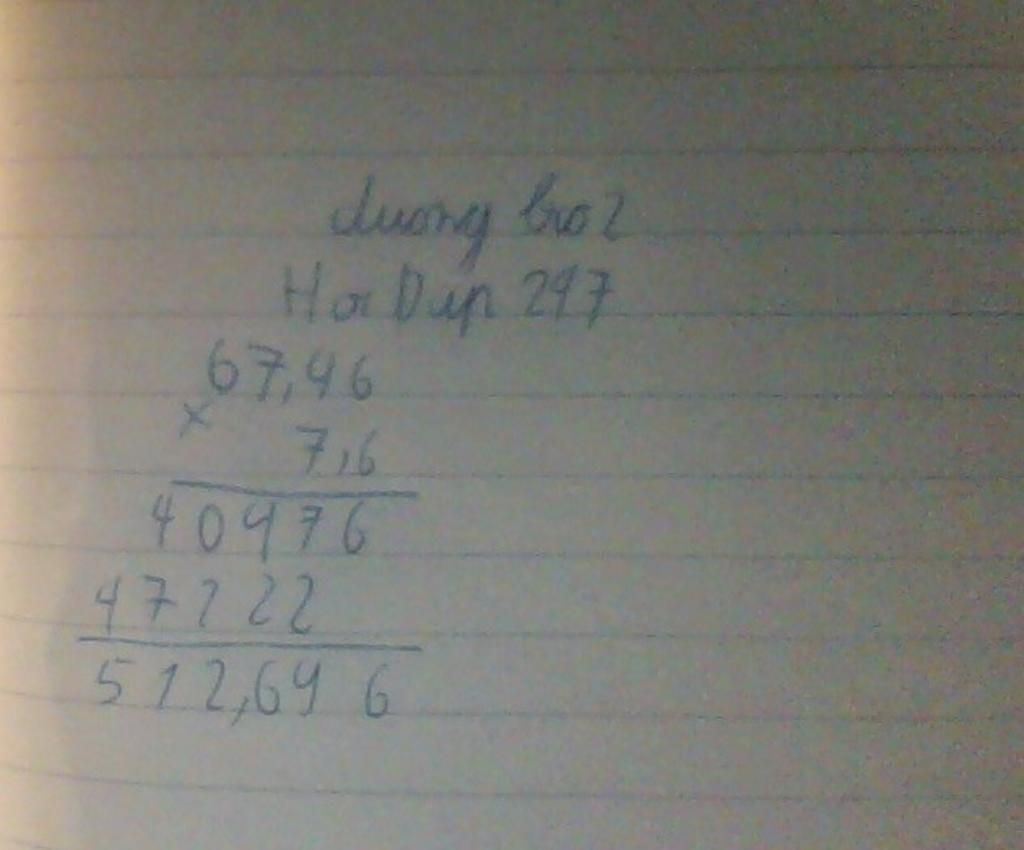 duong bro2
Hoi Dap 247
67,46
×
7,6
40476
47222
512,696